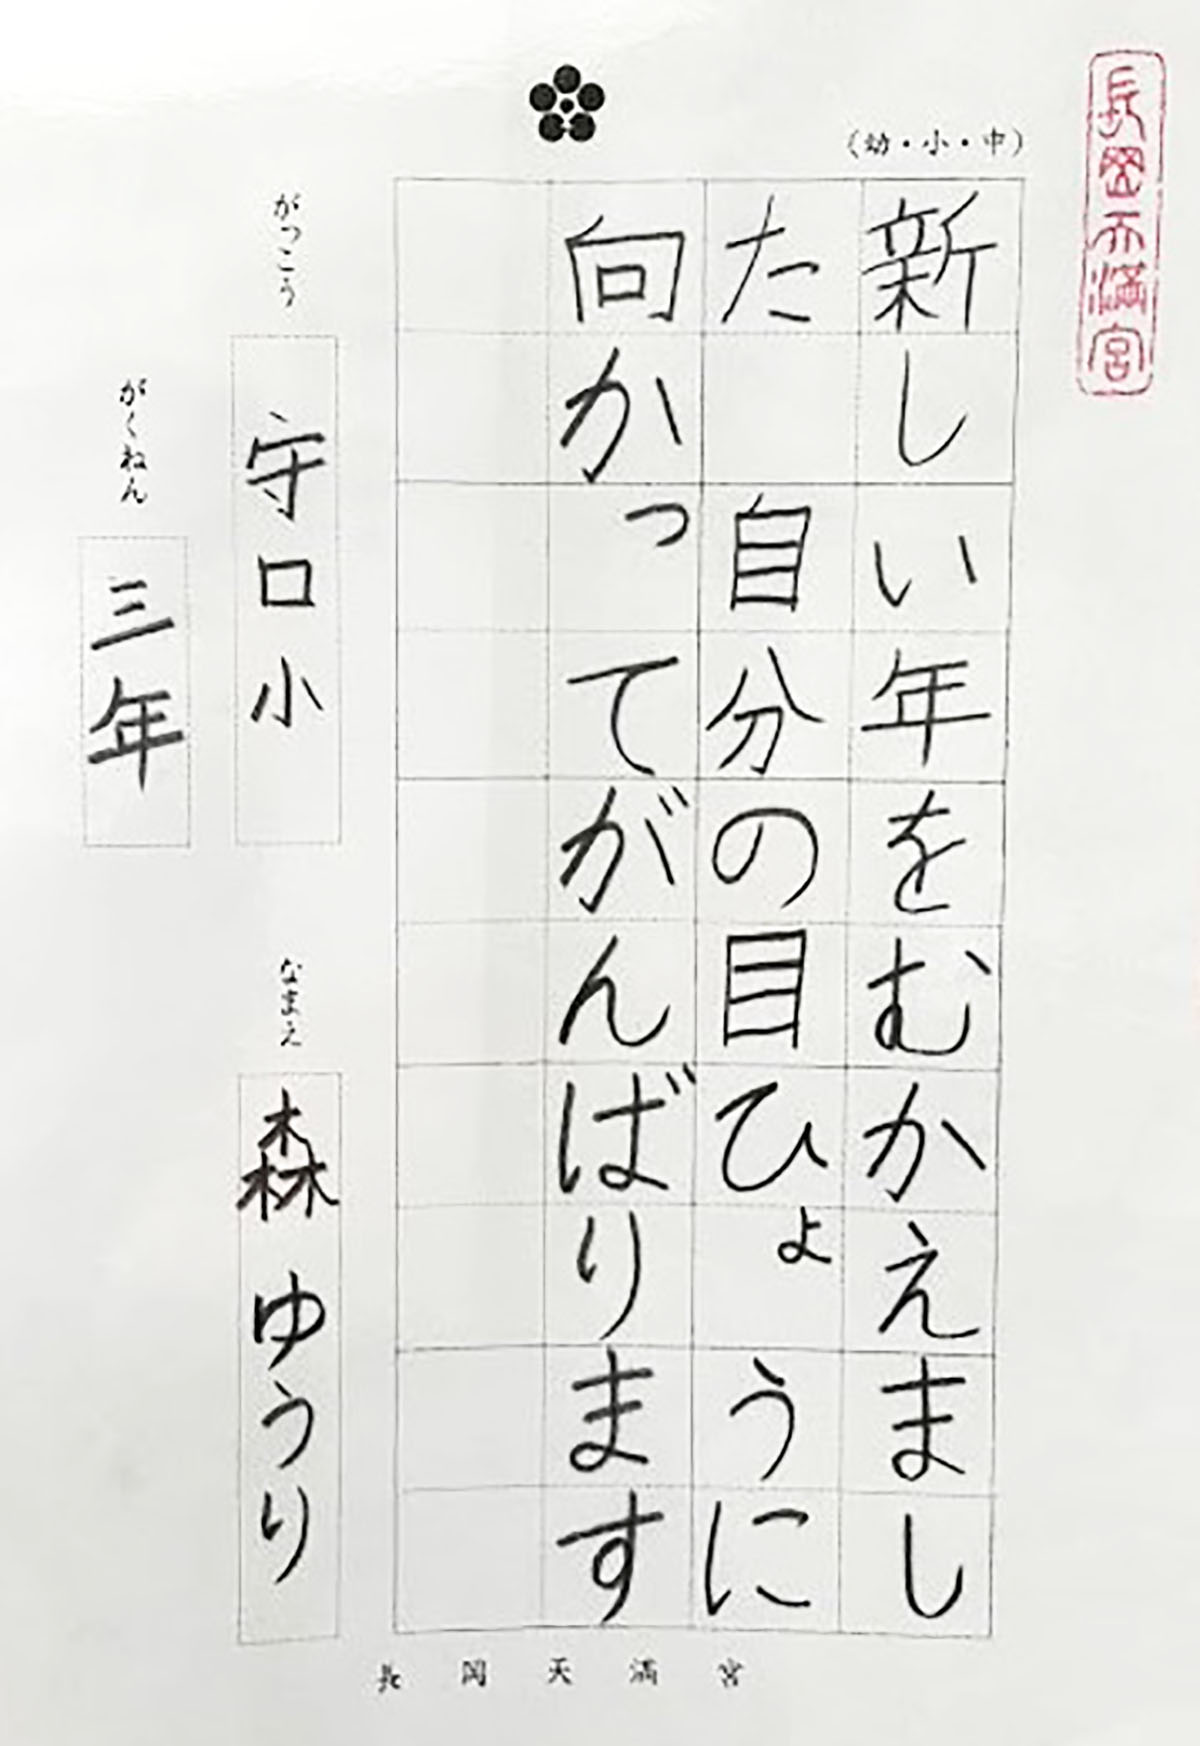 長岡天満宮
(幼・小・中)
新しい年をむかえまし
た 自分の目ひょうに
向かってがんばります
がっこう
守口小
がくねん
三年
なまえ
森ゆうり
長岡天満宮